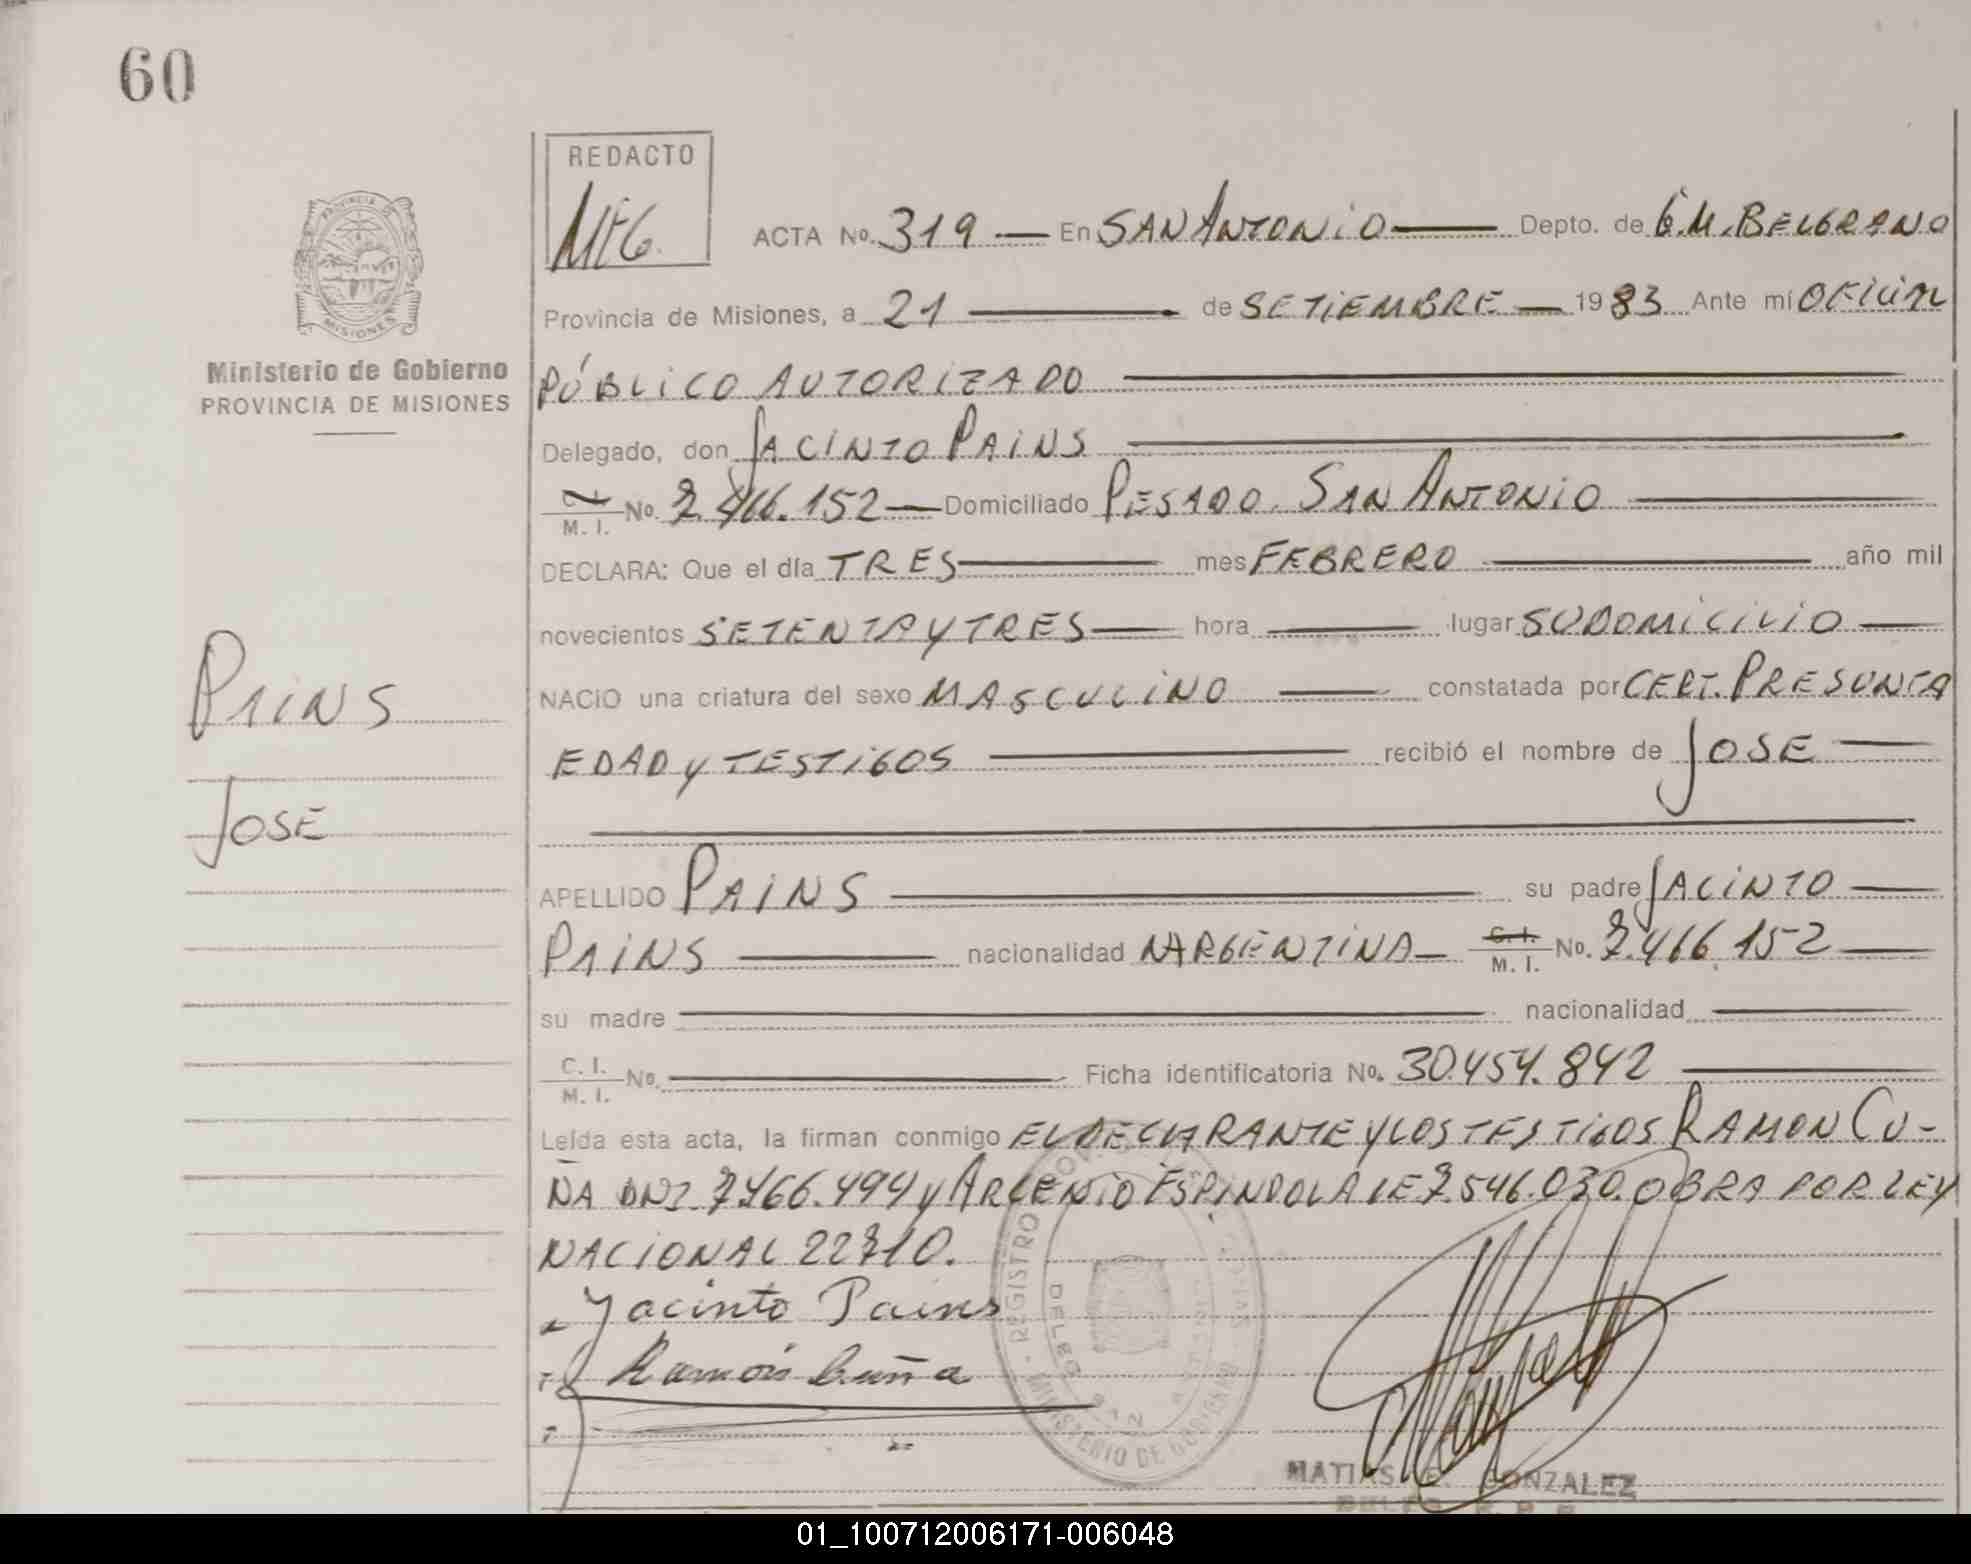 60
REDACTO
MEG.
ACTA No. 319 — En SAN ANTONIO — Depto. de G.M. BELGRANO
Provincia de Misiones, a 21 — de SETIEMBRE — 1983 Ante mí OFICIAL
PÚBLICO AUTORIZADO
Delegado, don JACINTO PAINS
C.I. M. I. No. 7.466.152 — Domiciliado PESADO. SAN ANTONIO
DECLARA: Que el día TRES — mes FEBRERO — año mil
novecientos SETENTA Y TRES — hora — lugar SU DOMICILIO —
NACIO una criatura del sexo MASCULINO — constatada por CERT. PRESUNTA
EDAD Y TESTIGOS — recibió el nombre de JOSE —
APELLIDO PAINS — su padre JACINTO —
PAINS — nacionalidad ARGENTINA — C.I. M. I. No. 7.466.152 —
su madre — nacionalidad —
C. I. M. I. No. — Ficha identificatoria No. 30.454.842 —
Leída esta acta, la firman conmigo EL DECLARANTE Y LOS TESTIGOS RAMON CU-
ÑA DNI. 7.466.494 y ARCENIO ESPINDOLA LE 7.546.030. OBRA POR LEY
NACIONAL 22710.
Jacinto Pains
Ramón Cuña
MATIAS E. GONZALEZ
PROVINCIA DE
MISIONES
Ministerio de Gobierno
PROVINCIA DE MISIONES
PAINS
JOSE
REGISTRO
DELEG SAN
MINISTERIO DE GOBIERNO
01_100712006171-006048